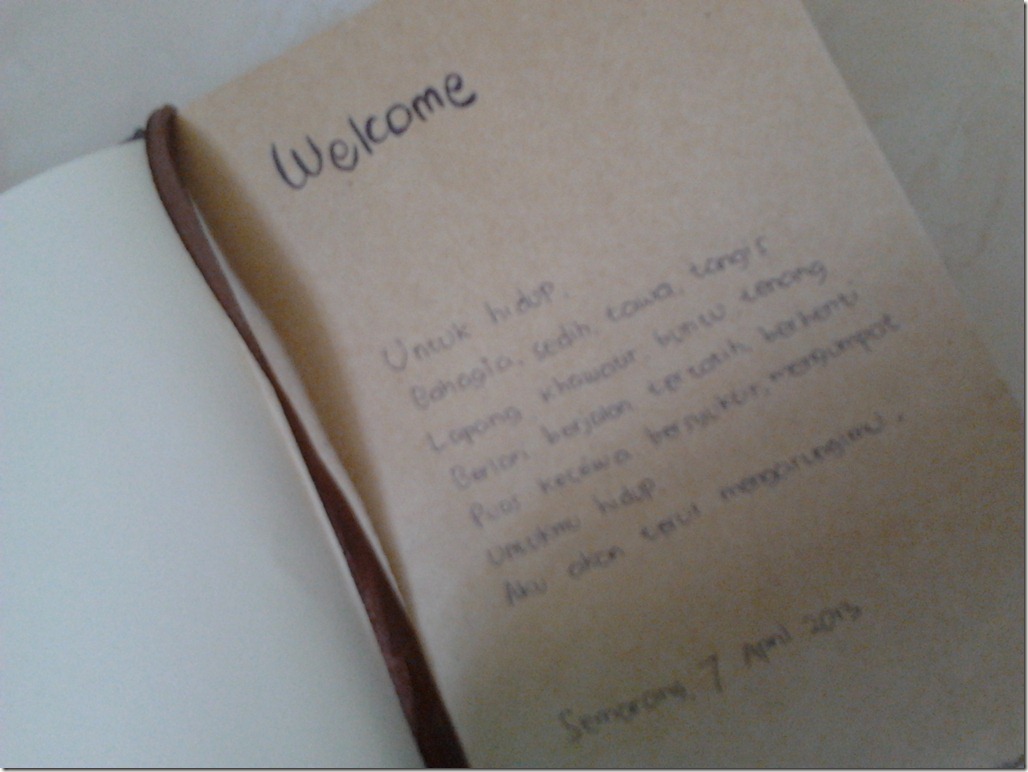 Welcome
Untuk hidup.
Bahagia, sedih, tawa, tangis
Lapang, khawatir, buntu tenang
Berlari berjalan tertatih, berhenti
Puas kecewa bersyukur, mengumpat
Untukmu hidup.
Aku akan terus mengarungimu.
Semarang, 7 April 2013